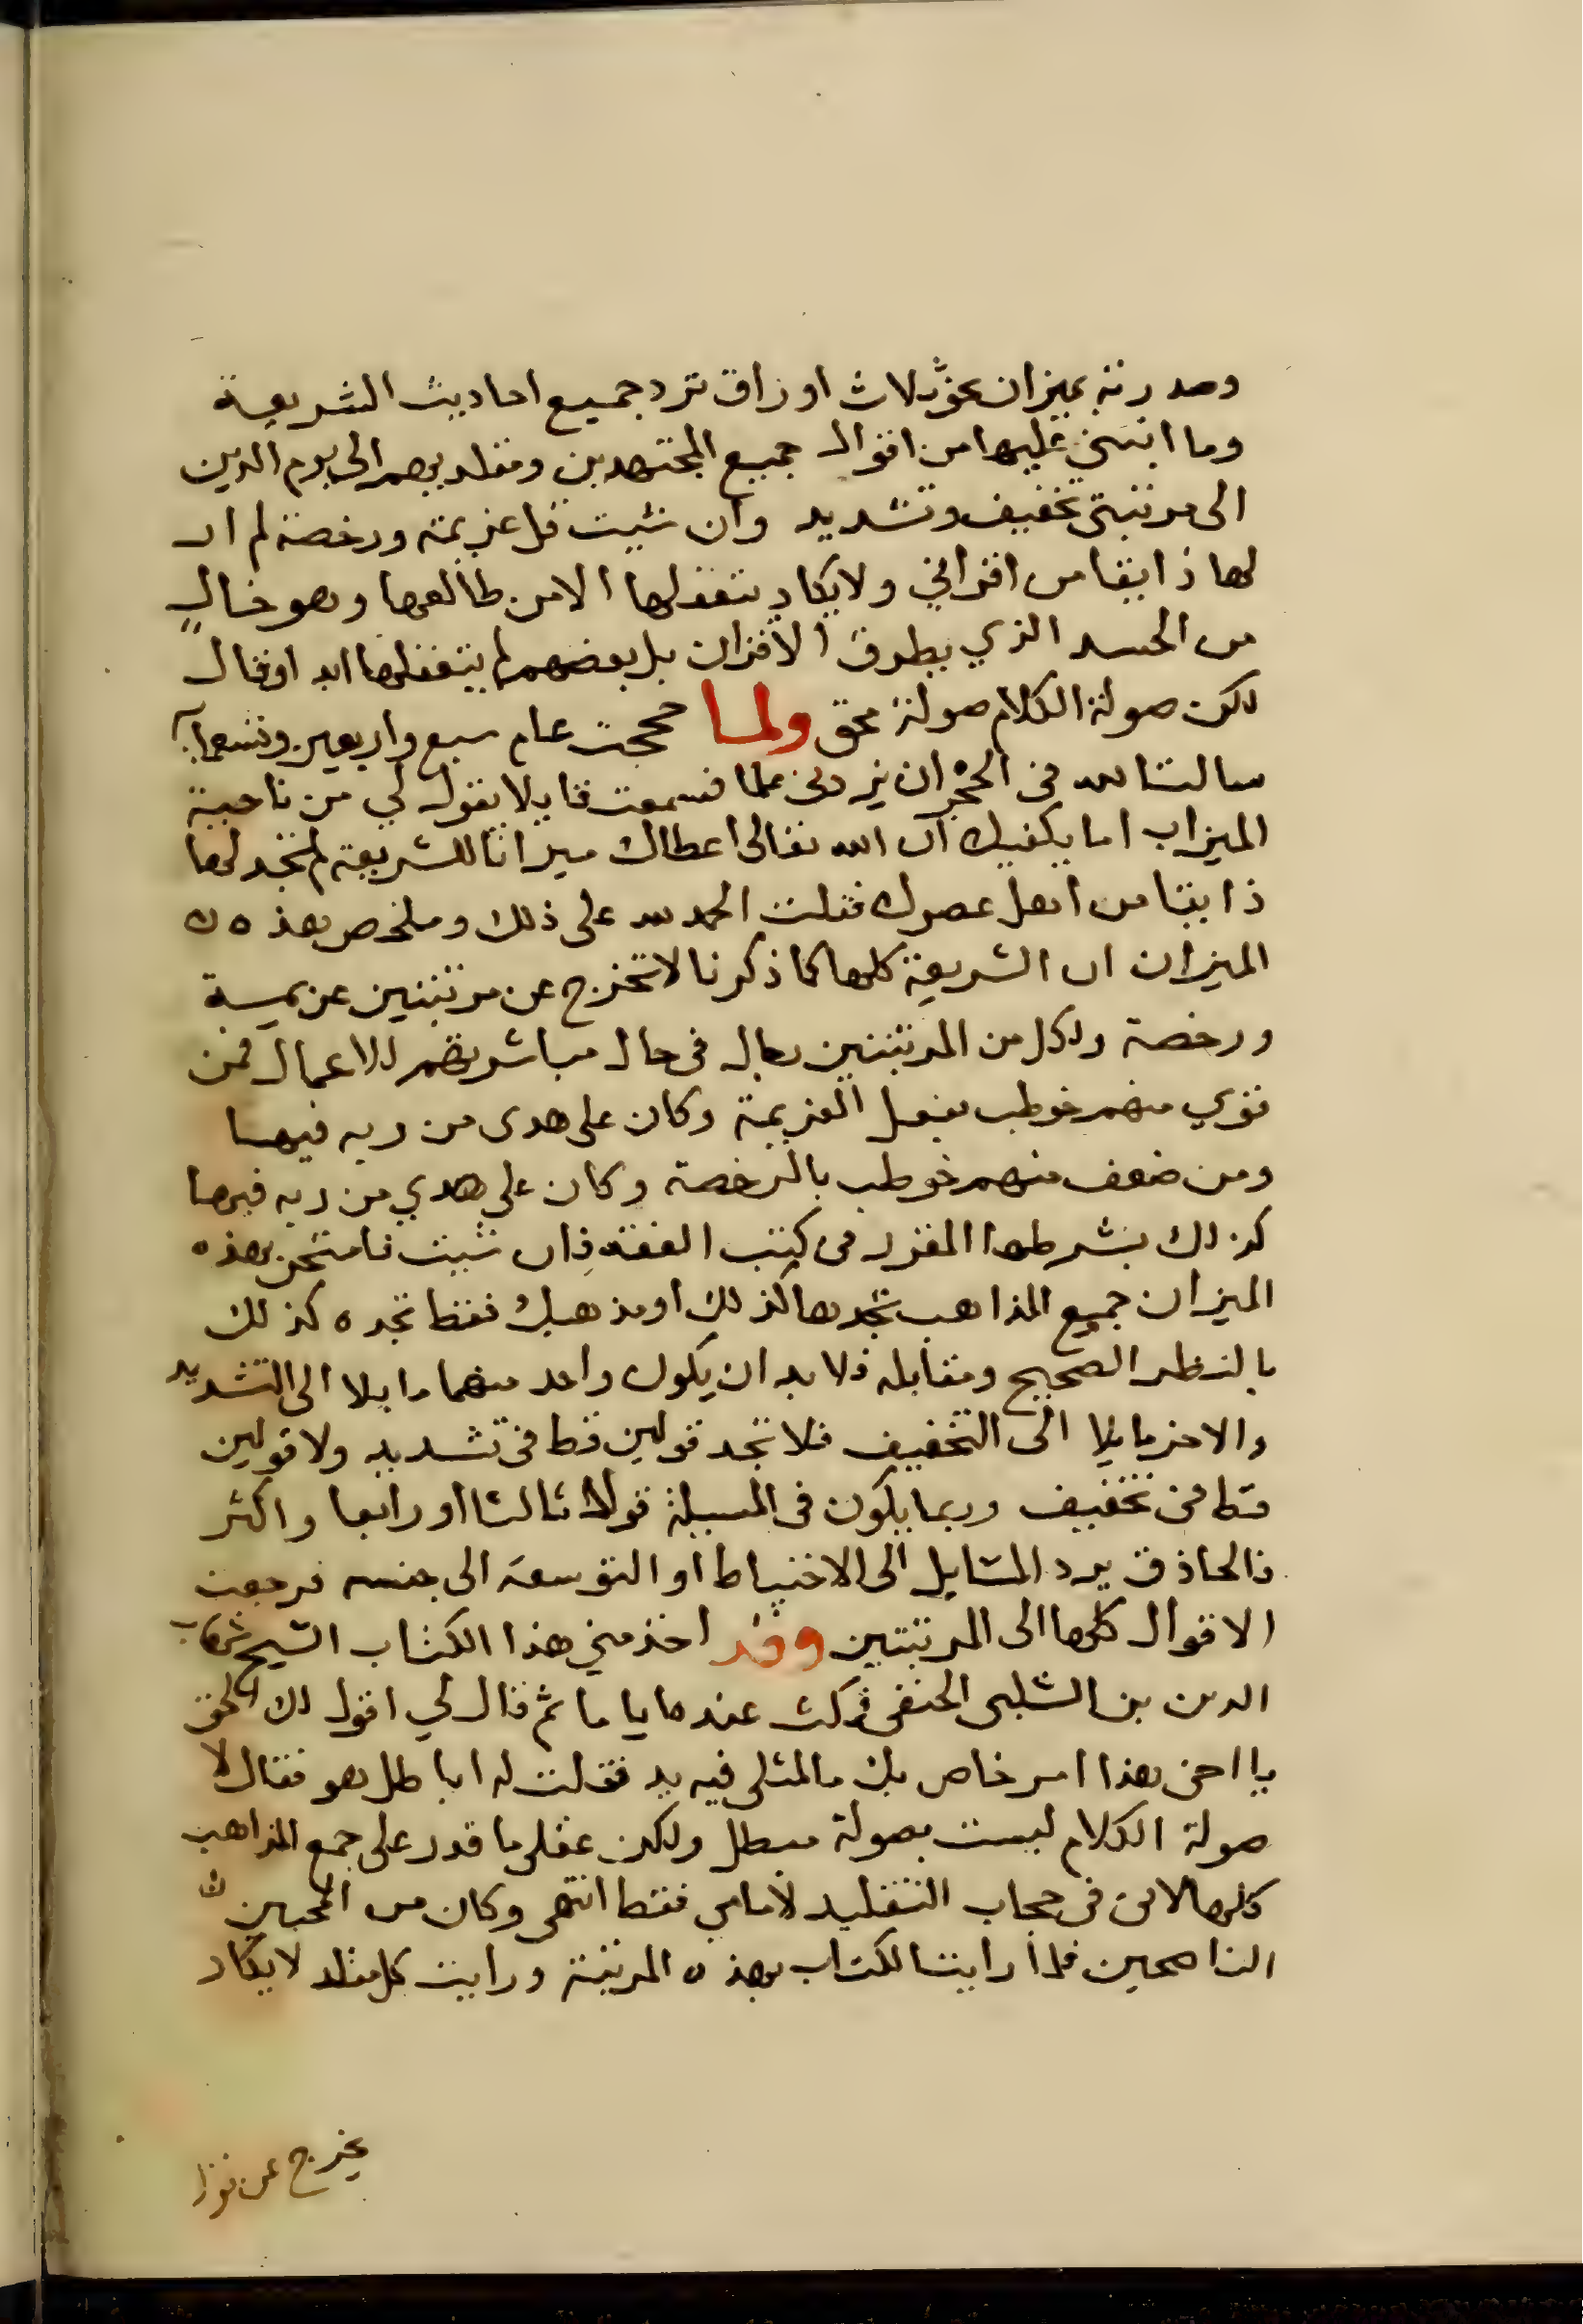 وصدرته بميزان نحو ثلاث اوراق ترد جميع احاديث الشريعة
وما انبنى عليها من اقوال جميع المجتهدين ومقلديهم الى يوم الدين
الى مرتبتي تخفيف وتشديد وان شيت قل عزيمة ورخصة لم ار
لها ذايقا من اقراني ولا يكاد يتعقلها الا من طالعها وهو خال
من الحسد الذي يطرق الاقران بل بعضهم لم يتعقلها ابدا وقال
لكن صولة الكلام صولة محق ولما حججت عام سبع واربعين وتسعماية
سالت الله في الحجر ان يزدني علما فسمعت قايلا يقول لي من ناحية
الميزاب اما يكفيك ان الله تعالى اعطاك ميزانا للشريعة لم تجد لها
ذايقا من اهل عصرك فقلت الحمد لله على ذلك وملخص هذه
الميزان ان الشريعة كلها كما ذكرنا لا تخرج عن مرتبتين عزيمة
ورخصة ولكل من المرتبتين رجال في حال مباشرتهم للاعمال فمن
قوي منهم خوطب بفعل العزيمة وكان على هدى من ربه فيها
ومن ضعف منهم خوطب بالرخصة وكان على هدي من ربه فيها
كذلك بشرطها المقرر في كتب الفقه فان شيت فامتحن بهذه
الميزان جميع المذاهب تجدها كذلك او مذهبك فقط تجده كذلك
بالنظر الصحيح ومقابله فلا بد ان يكون واحد منهما مايلا الى التشديد
والاخر مايلا الى التخفيف فلا تجد قولين قط في تشديد ولا قولين
قط في تخفيف وربما يكون في المسيلة قولا ثالثا او رابعا واكثر
فالحاذق يرد المايل الى الاحتياط او التوسعة الى جنسه فرجعت
الاقوال كلها الى المرتبتين وقد اخذ مني هذا الكتاب الشيخ شهاب
الدين بن الشلبي الحنفي فمكث عنده اياما ثم قال لي اقول لك الحق
يا اخى هذا امر خاص بك ما لمثلي فيه يد فقلت له اباطل هو فقال لا
صولة الكلام ليست بصولة مبطل ولكن عقلي ما قدر على جمع المذاهب
كلها لاني في حجاب التقليد لامامي فقط انتهى وكان من المحبين
الناصحين فلما رايت الكتاب بهذه المرتبة ورايت كل مقلد لا يكاد
يخرج عن قول